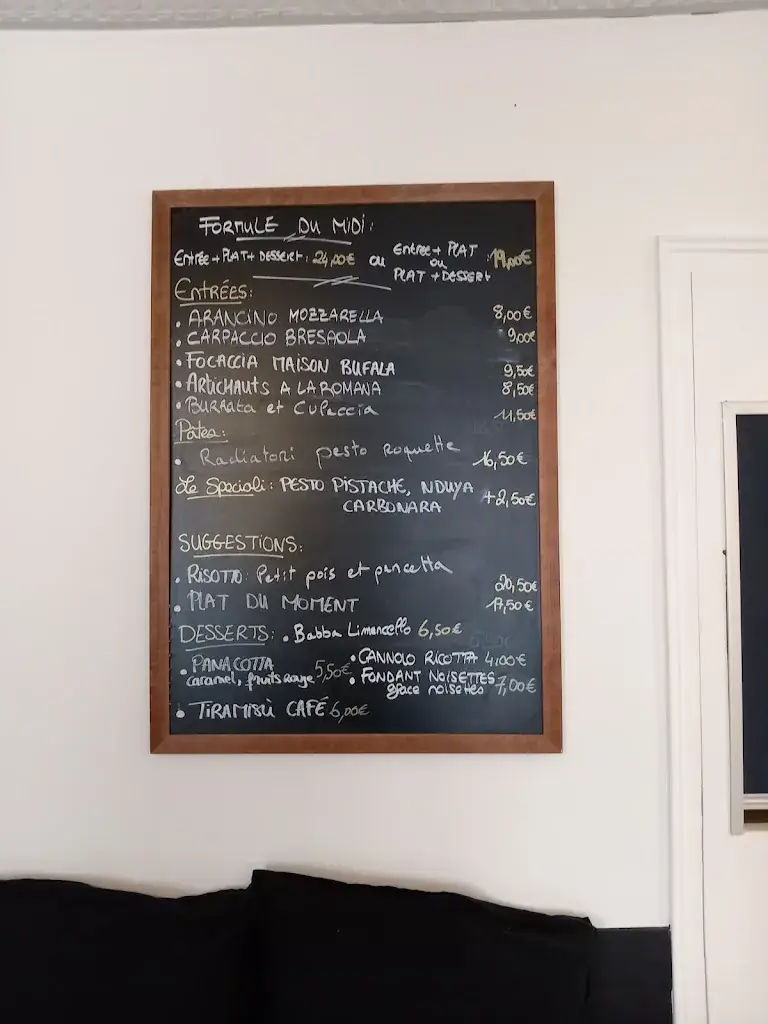 FORMULE DU MIDI:
ENTRÉE + PLAT + DESSERT: 24,00€ ou ENTREE + PLAT ou PLAT + DESSERT : 19,00€
ENTRÉES:
• ARANCINO MOZZARELLA 8,00€
• CARPACCIO BRESAOLA 9,00€
• FOCACCIA MAISON BUFALA 9,50€
• ARTICHAUTS A LA ROMANA 8,50€
• BURRATA et CULACCIA 11,50€
Pates:
• Radiatori pesto roquette 16,50€
Le Speciali: PESTO PISTACHE, NDUYA CARBONARA +2,50€
SUGGESTIONS:
• RISOTTO: Petit pois et pancetta 20,50€
• PLAT DU MOMENT 17,50€
DESSERTS: • Babba Limoncello 6,50€
• PANACOTTA caramel, fruits rouge 5,50€
• CANNOLO RICOTTA 4,00€
• FONDANT NOISETTES glace noisettes 7,00€
• TIRAMISÙ CAFÉ 6,00€